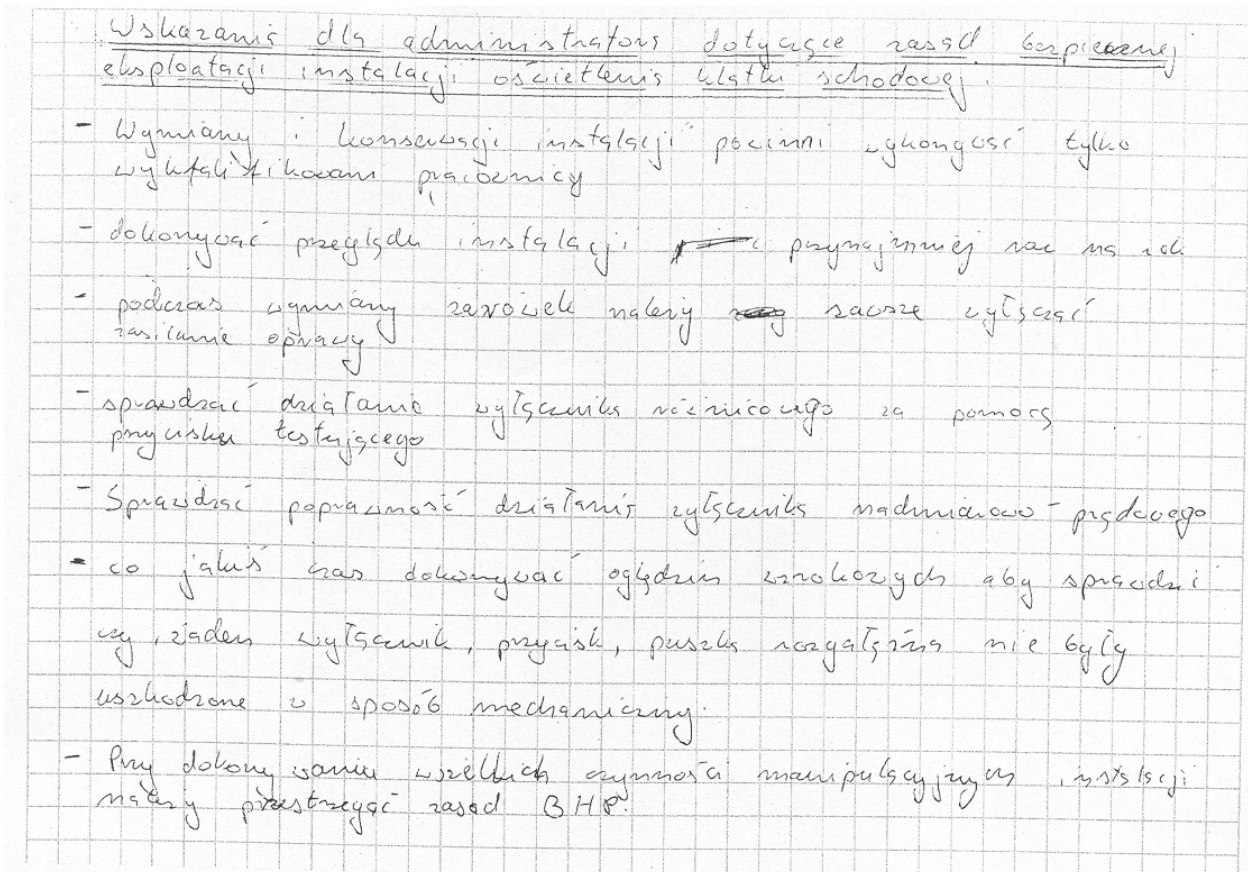 Wskazania dla administratora dotyczące zasad bezpiecznej
eksploatacji instalacji oświetlenia klatki schodowej.
- Wymiany i konserwacji instalacji powinni wykonywać tylko
wykwalifikowani pracownicy
- dokonywać przeglądu instalacji przynajmniej raz na rok
- podczas wymiany żarówek należy zawsze wyłączać
zasilanie oprawy
- sprawdzać działanie wyłącznika różnicowego za pomocą
przycisku testującego
- Sprawdzać poprawność działania wyłącznika nadmiarowo-prądowego
- co jakiś czas dokonywać oględzin wzrokowych aby sprawdzi
czy, żaden wyłącznik, przycisk, puszka rozgałęźna nie były
uszkodzone w sposób mechaniczny.
- Przy dokonywaniu wszelkich czynności manipulacyjnych instalacji
należy przestrzegać zasad BHP.